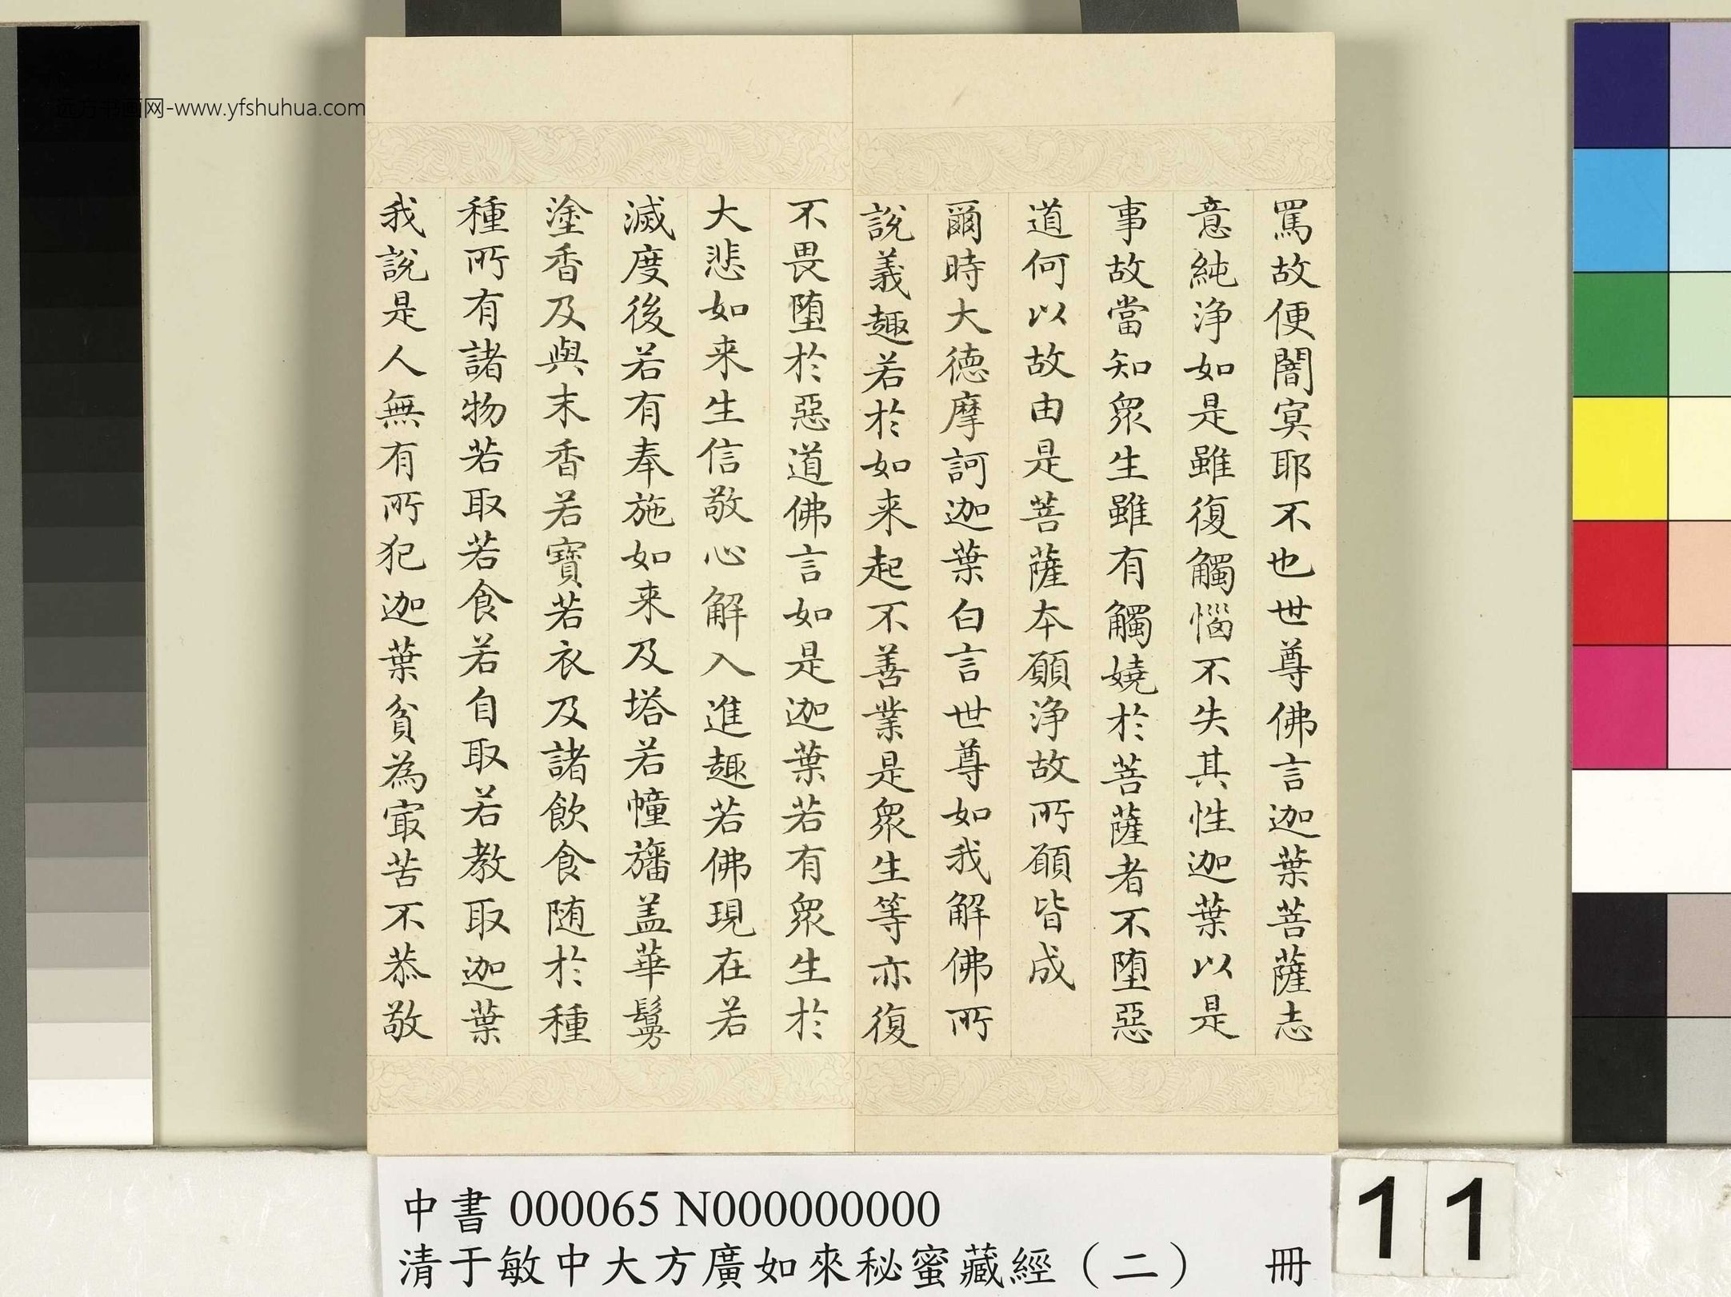 罵故便闇冥耶不也世尊佛言迦葉菩薩志
意純浄如是雖復觸惱不失其性迦葉以是
事故當知衆生雖有觸嬈於菩薩者不墮惡
道何以故由是菩薩本願浄故所願皆成
爾時大德摩訶迦葉白言世尊如我解佛所
說義趣若於如来起不善業是衆生等亦復
不畏墮於惡道佛言如是迦葉若有衆生於
大悲如来生信敬心解入進趣若佛現在若
滅度後若有奉施如来及塔若幢旛盖華鬘
塗香及與末香若寶若衣及諸飲食随於種
種所有諸物若取若食若自取若教取迦葉
我說是人無有所犯迦葉貧為寂苦不恭敬
中書 000065 N000000000
清于敏中大方廣如來秘蜜藏經（二） 冊
11
书画网-www.yfshuhua.com